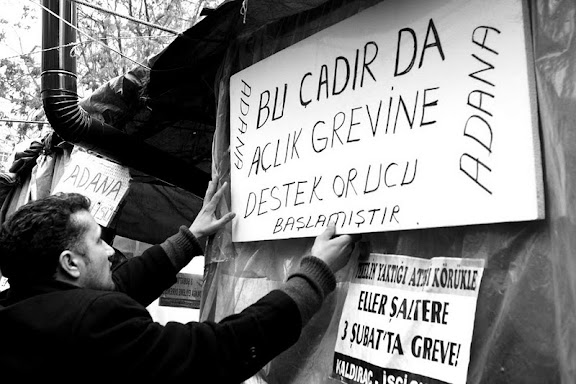 BU ÇADIR DA
AÇLIK GREVİNE
DESTEK ORUCU
BAŞLAMIŞTIR.
ADANA
ADANA
ADANA
YAKTIĞI ATEŞİ KÖRÜKLE
ELLER ŞALTERE
3 ŞUBAT'TA GREVE!
KALDIRAÇ